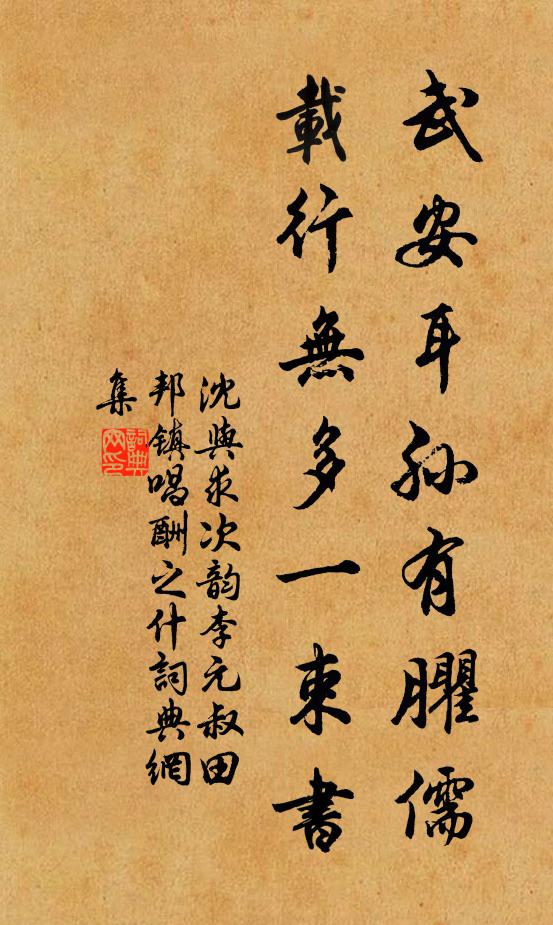 武安耳孫有臞儒
載行無多一束書
沈與求次韵李元叔田
邦鎮唱酬之什詞典網
集
詞典網印